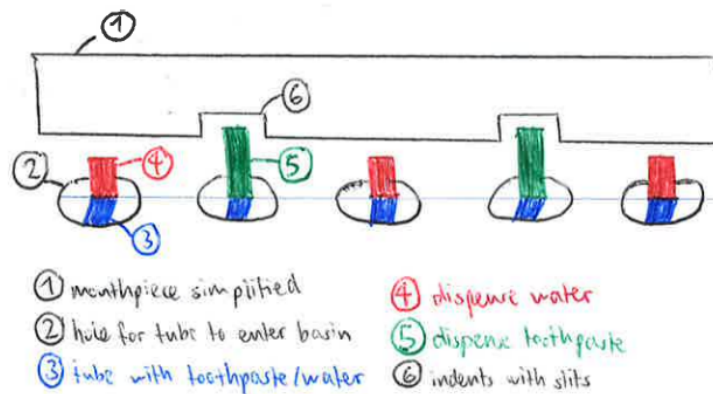 1
6
2
4
5
3
1 mouthpiece simplified
2 hole for tube to enter basin
3 tube with toothpaste/water
4 dispense water
5 dispense toothpaste
6 indents with slits